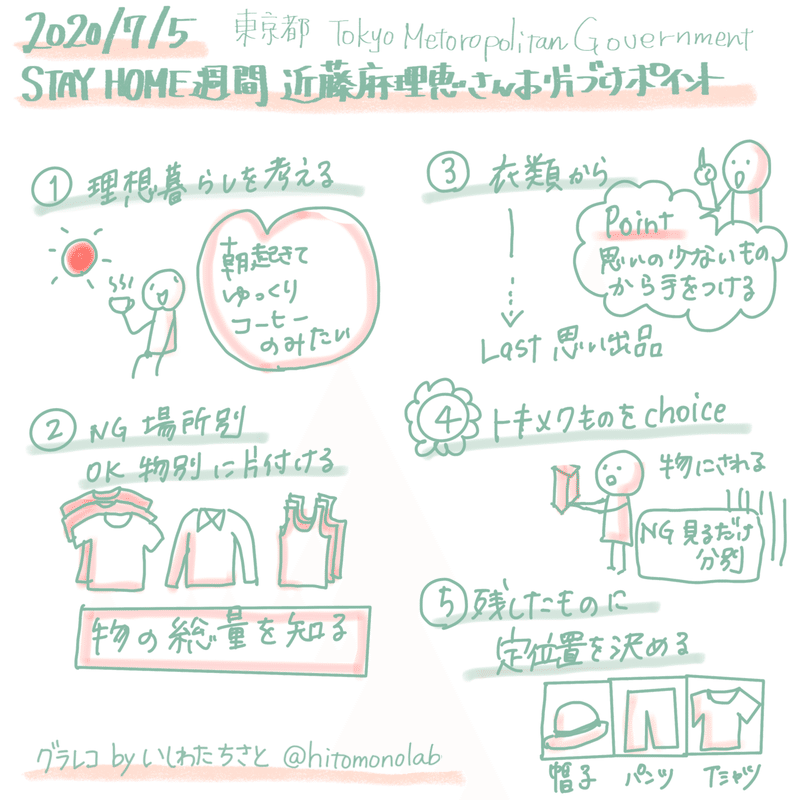 2020/7/5 東京都 Tokyo Metoropolitan Government
STAY HOME週間 近藤麻理恵さんお片づけポイント
① 理想暮らしを考える
朝起きて
ゆっくり
コーヒー
のみたい
② NG 場所別
OK 物別に片付ける
物の総量を知る
③ 衣類から
Point
思い入の少ないもの
から手をつける
Last 思い出品
④ トキメクものをchoice
物にされる
NG 見るだけ
分別
⑤ 残したものに
定位置を決める
帽子 パンツ Tシャツ
グラレコ by いしわたちさと @hitomonolab